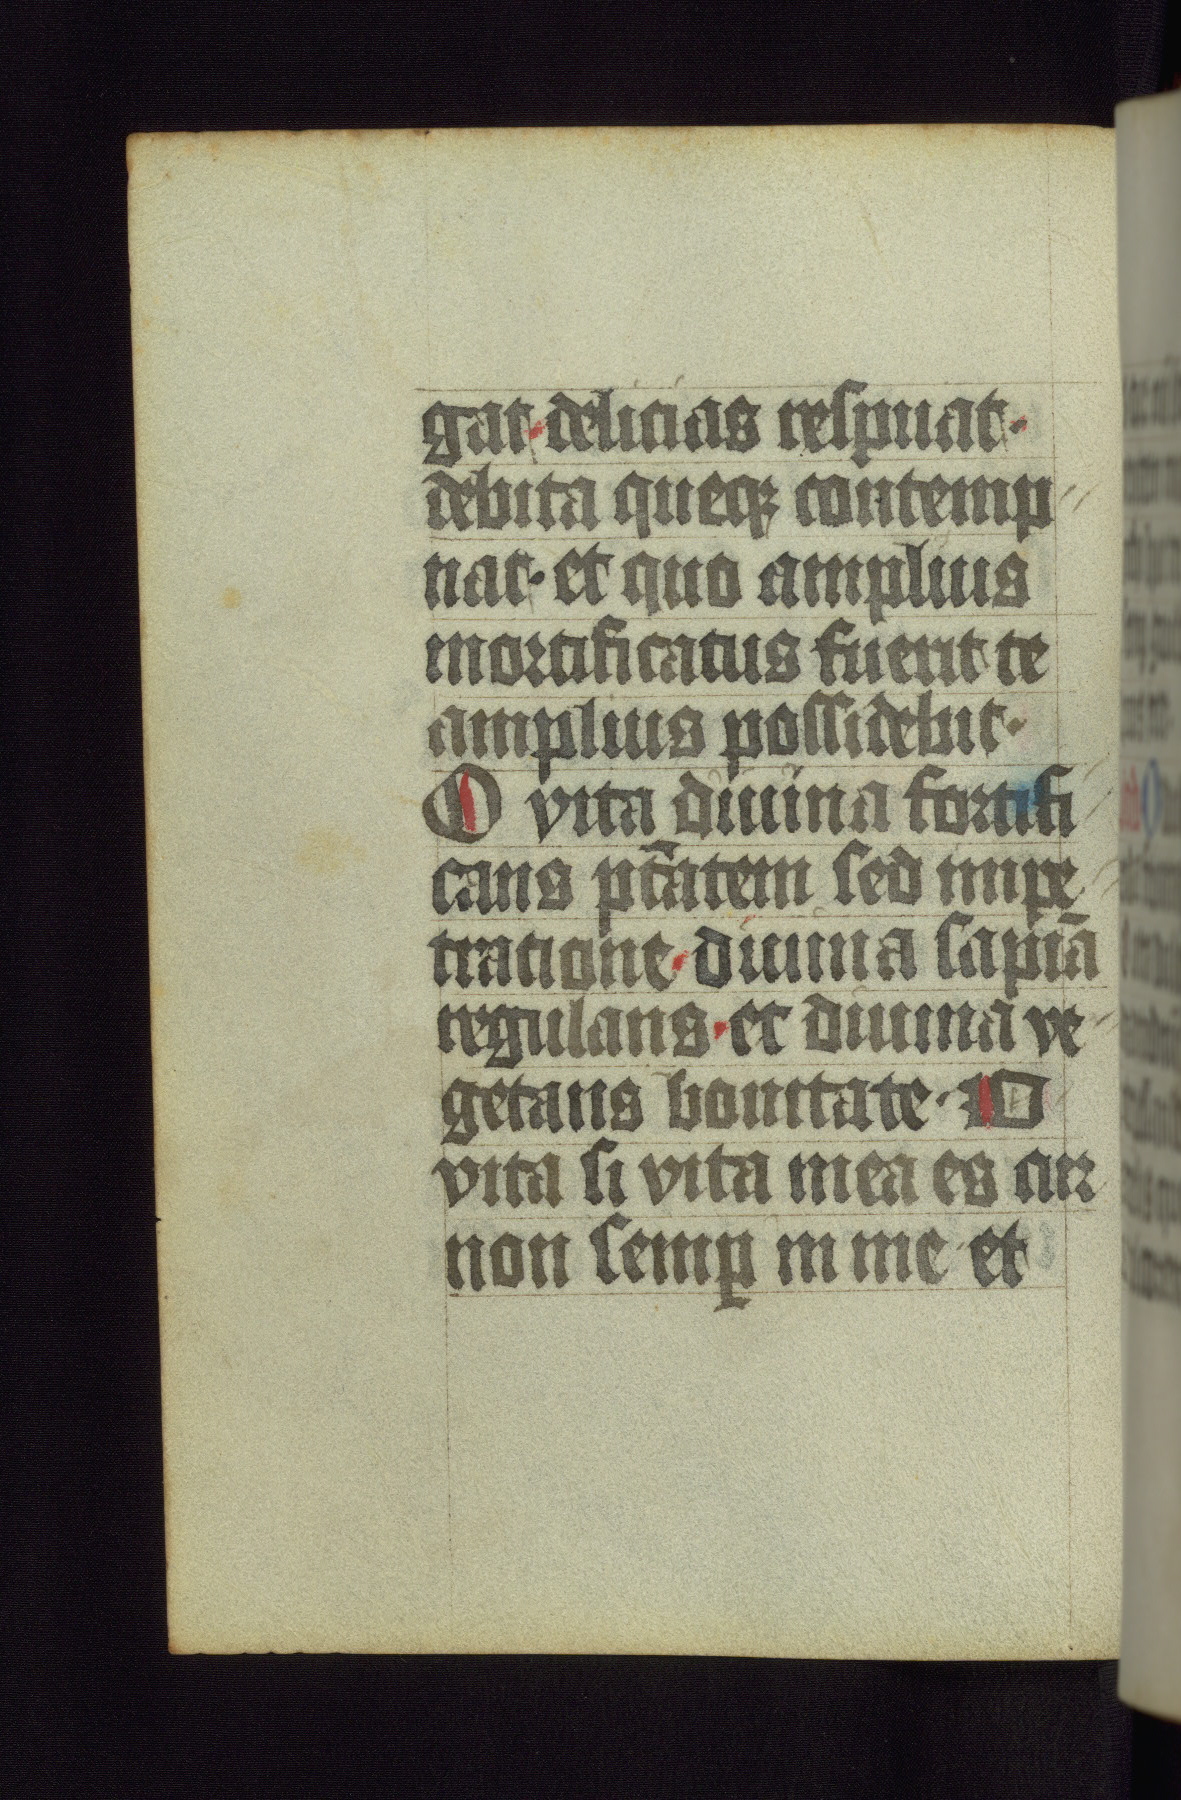 gat · delicias respuat ·
debita queqꝫ contemp
nat · et quo amplius
mortificatus fuerit te
amplius possidebit ·
O vita diuina fortifi
cans ptãtem sed impe
tratione · diuina sapiẽa
regulans · et diuina ve
getans bonitate · O
vita si vita mea es cur
non semꝑ in me et